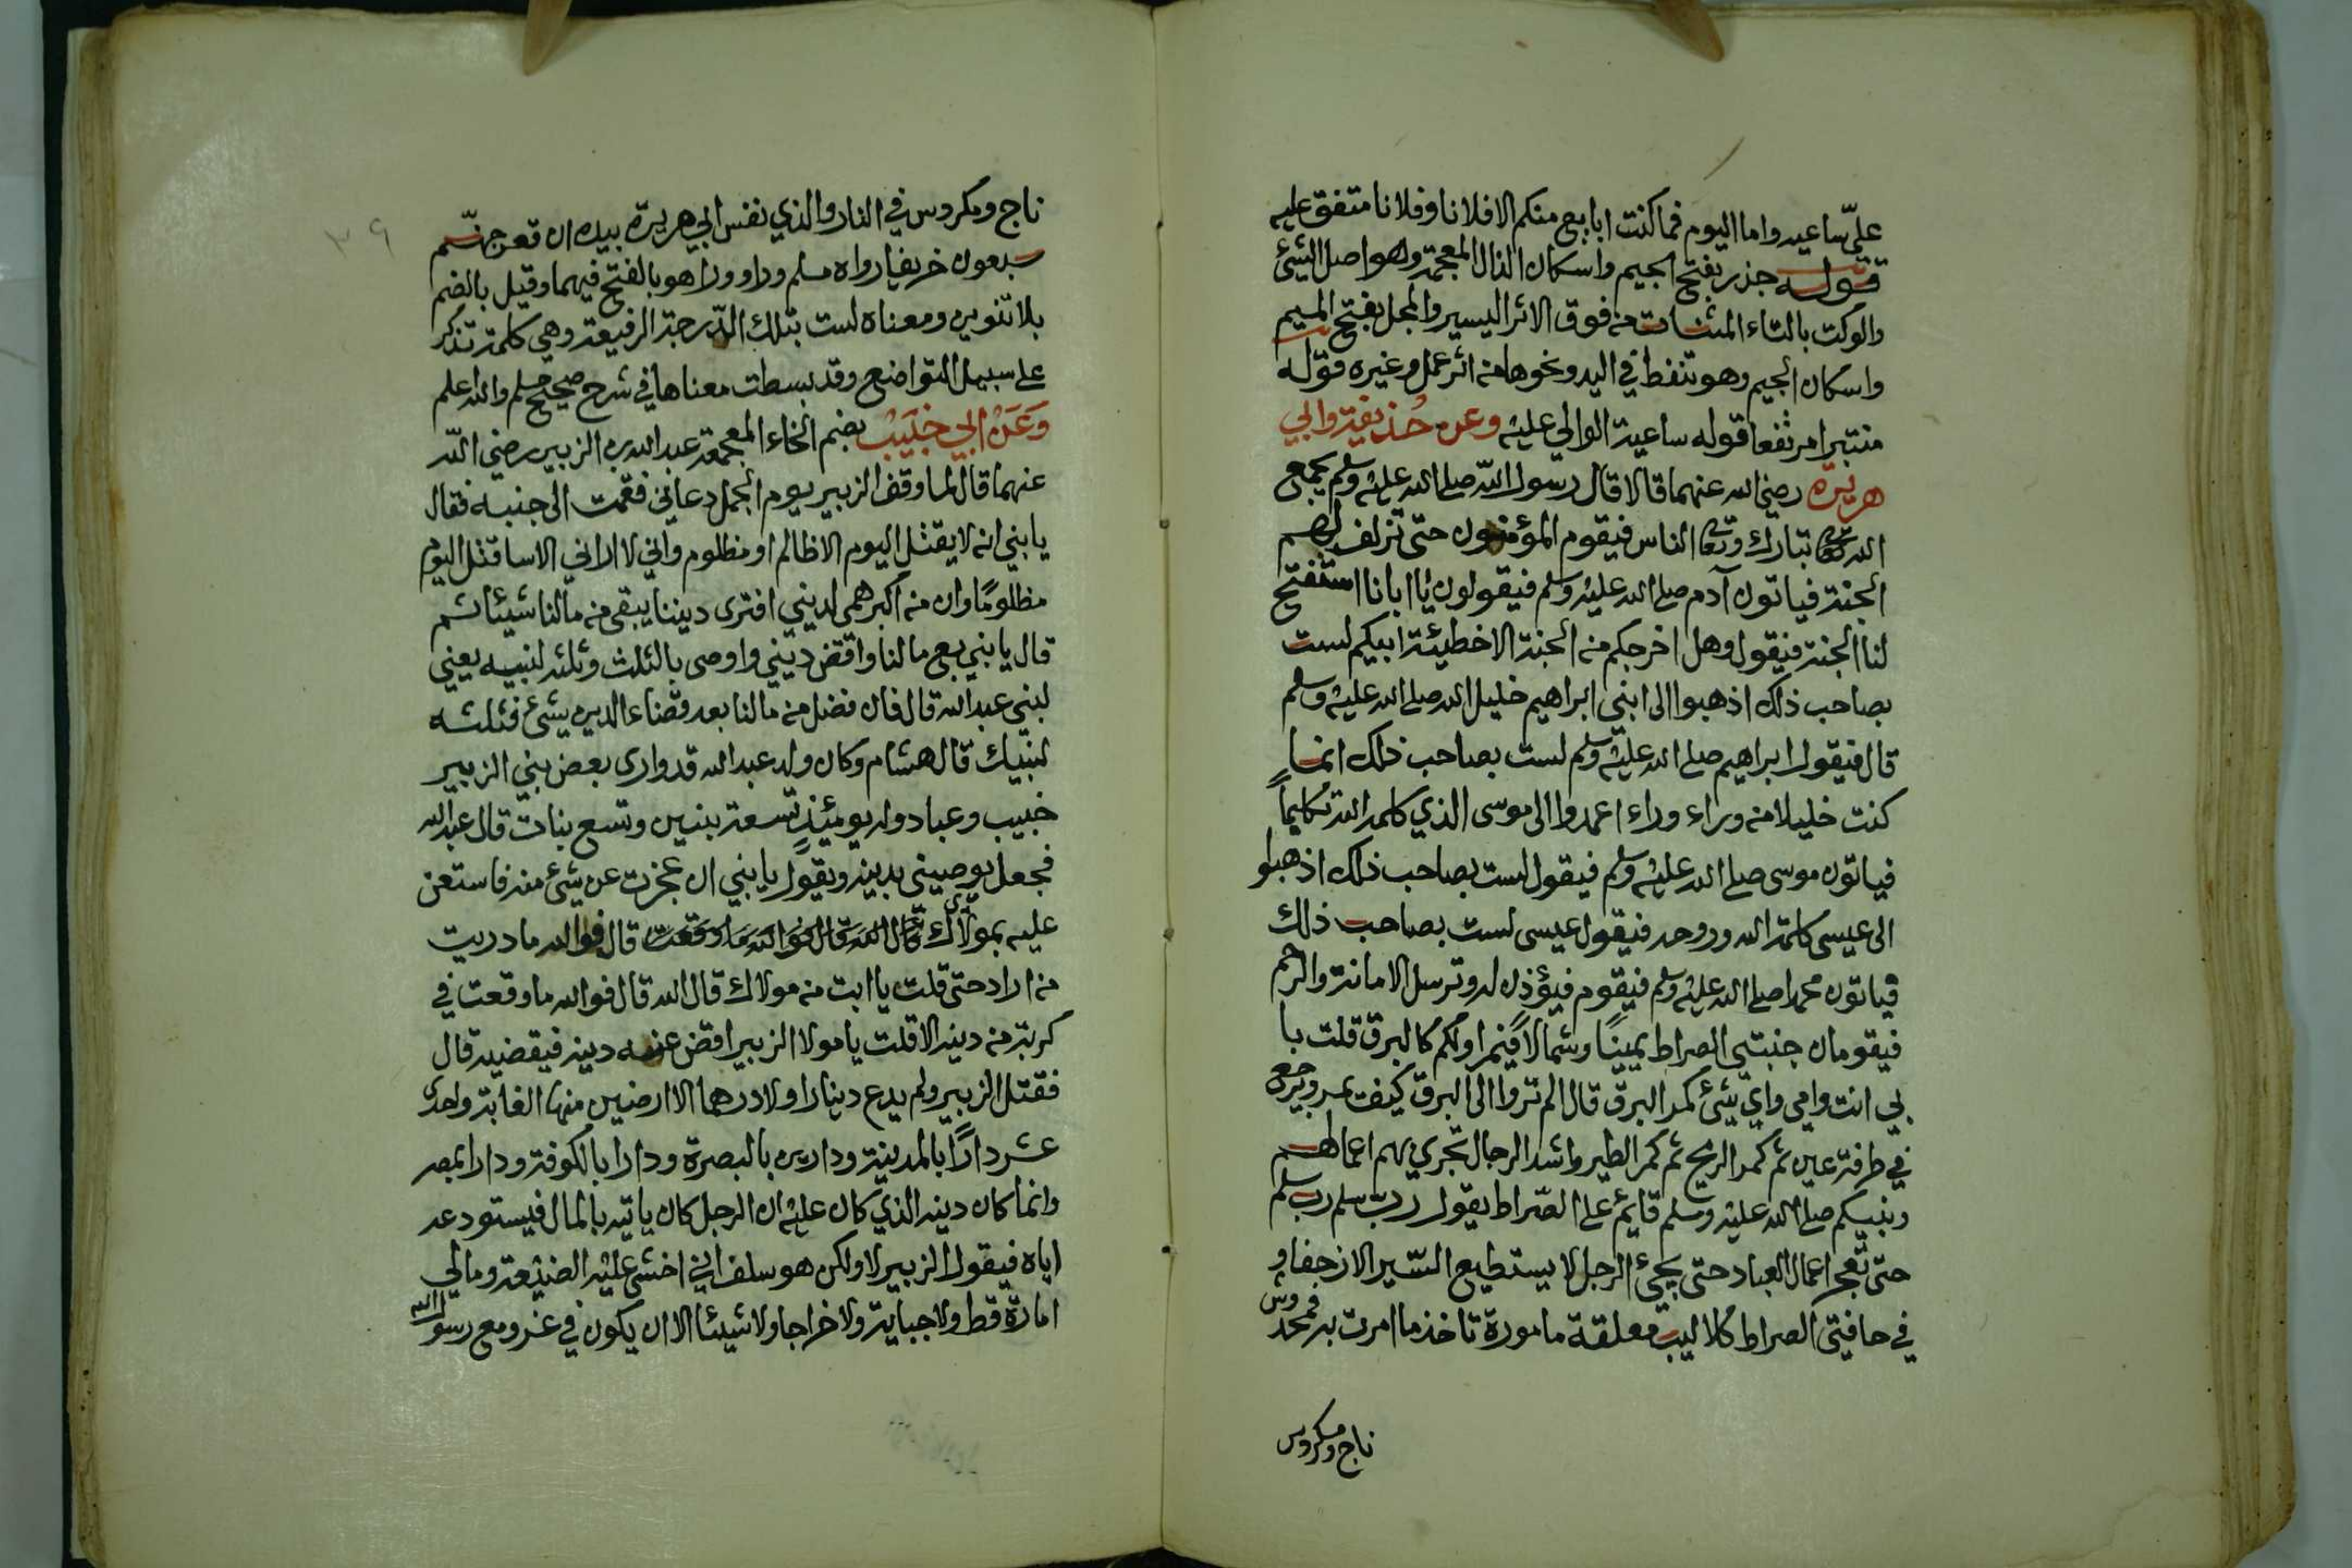 عليّ ساعيه واما اليوم فما كنت ابايع منكم الا فلانا وفلانا متفق عليه
قوله جذر بفتح الجيم واسكان الذال المعجمة وهو اصل الشئ
والوكت بالتاء المثناة من فوق الاثر اليسير والمجل بفتح الميم
واسكان الجيم وهو تنفط في اليد ونحوها من اثر عمل وغيره قوله
منتبرا مرتفعا قوله ساعية الوالي عليه وعن حُذيفة وابي
هريرة رضي الله عنهما قالا قال رسول الله صلى الله عليه وسلم يجمع
الله تبارك وتعالى الناس فيقوم المؤمنون حتى تزلف لهم
الجنة فياتون آدم صلى الله عليه وسلم فيقولون يا ابانا استفتح
لنا الجنة فيقول وهل اخرجكم من الجنة الا خطيئة ابيكم لست
بصاحب ذلك اذهبوا الى ابني ابراهيم خليل الله صلى الله عليه وسلم
قال فيقول ابراهيم صلى الله عليه وسلم لست بصاحب ذلك انما
كنت خليلا من وراء وراء اعمدوا الى موسى الذي كلمه الله تكليماً
فياتون موسى صلى الله عليه وسلم فيقول لست بصاحب ذلك اذهبوا
الى عيسى كلمة الله وروحه فيقول عيسى لست بصاحب ذلك
فياتون محمدا صلى الله عليه وسلم فيقوم فيؤذن له وترسل الامانة والرحم
فيقومان جنبتي الصراط يمينًا وشمالاً فيمر اولكم كالبرق قلت با
بي انت وامي واي شئ كمر البرق قال الم تروا الى البرق كيف يمر ويرجع
في طرفة عين ثم كمر الريح ثم كمر الطير واشد الرجال تجري بهم اعمالهم
ونبيكم صلى الله عليه وسلم قايم على الصراط يقول رب سلم رب سلم
حتى تعجز اعمال العباد حتى يجئ الرجل لا يستطيع السير الا زحفا و
في حافتي الصراط كلاليب معلقة مامورة تاخذ ما امرت به فمخدوش
ناج ومكروس
٣٩
ناج ومكروس في النار والذي نفس ابي هريرة بيده ان قعر جهنم
سبعون خريفا رواه مسلم وراء وراء هو بالفتح فيهما وقيل بالضم
بلا تنوين ومعناه لست بتلك الدّرجة الرفيعة وهي كلمة تذكر
على سبيل التواضع وقد بسطت معناها في شرح صحيح مسلم والله اعلم
وَعَنْ ابي خُبَيْب بضم الخاء المعجمة عبد الله بن الزبير رضي الله
عنهما قال لما وقف الزبير يوم الجمل دعاني فقمت الى جنبه فقال
يا بني انه لا يقتل اليوم الا ظالم او مظلوم واني لا اراني الا ساقتل اليوم
مظلومًا وان من اكبر همي لديني افترى ديننا يبقى من مالنا شيئا ثم
قال يا بني بع مالنا واقض ديني واوصى بالثلث وثلثه لبنيه يعني
لبني عبد الله قال فان فضل من مالنا بعد قضاء الدين شئ فثلثه
لبنيك قال هشام وكان ولد عبد الله قد وارى بعض بني الزبير
خبيب وعباد وله يومئذٍ تسعة بنين وتسع بنات قال عبد الله
فجعل يوصيني بدينه ويقول يا بني ان عجزت عن شئ منه فاستعن
عليه بمولاك قال الله قال فوالله ما وقعت قال فوالله ما دريت
من اراد حتى قلت يا ابت من مولاك قال الله قال فوالله ما وقعت في
كربة من دينه الا قلت يا مولا الزبير اقض عنه دينه فيقضيه قال
فقتل الزبير ولم يدع دينارا ولا درهما الا ارضين منها الغابة واحدى
عشر دارًا بالمدينة ودارين بالبصرة ودارا بالكوفة ودارا بمصر
وانما كان دينه الذي كان عليه ان الرجل كان ياتيه بالمال فيستودعه
اياه فيقول الزبير لا ولكن هو سلف اني اخشى عليه الضيعة وما لي
امارة قط ولا جباية ولا خراجا ولا شيئا الا ان يكون في غزو مع رسول الله